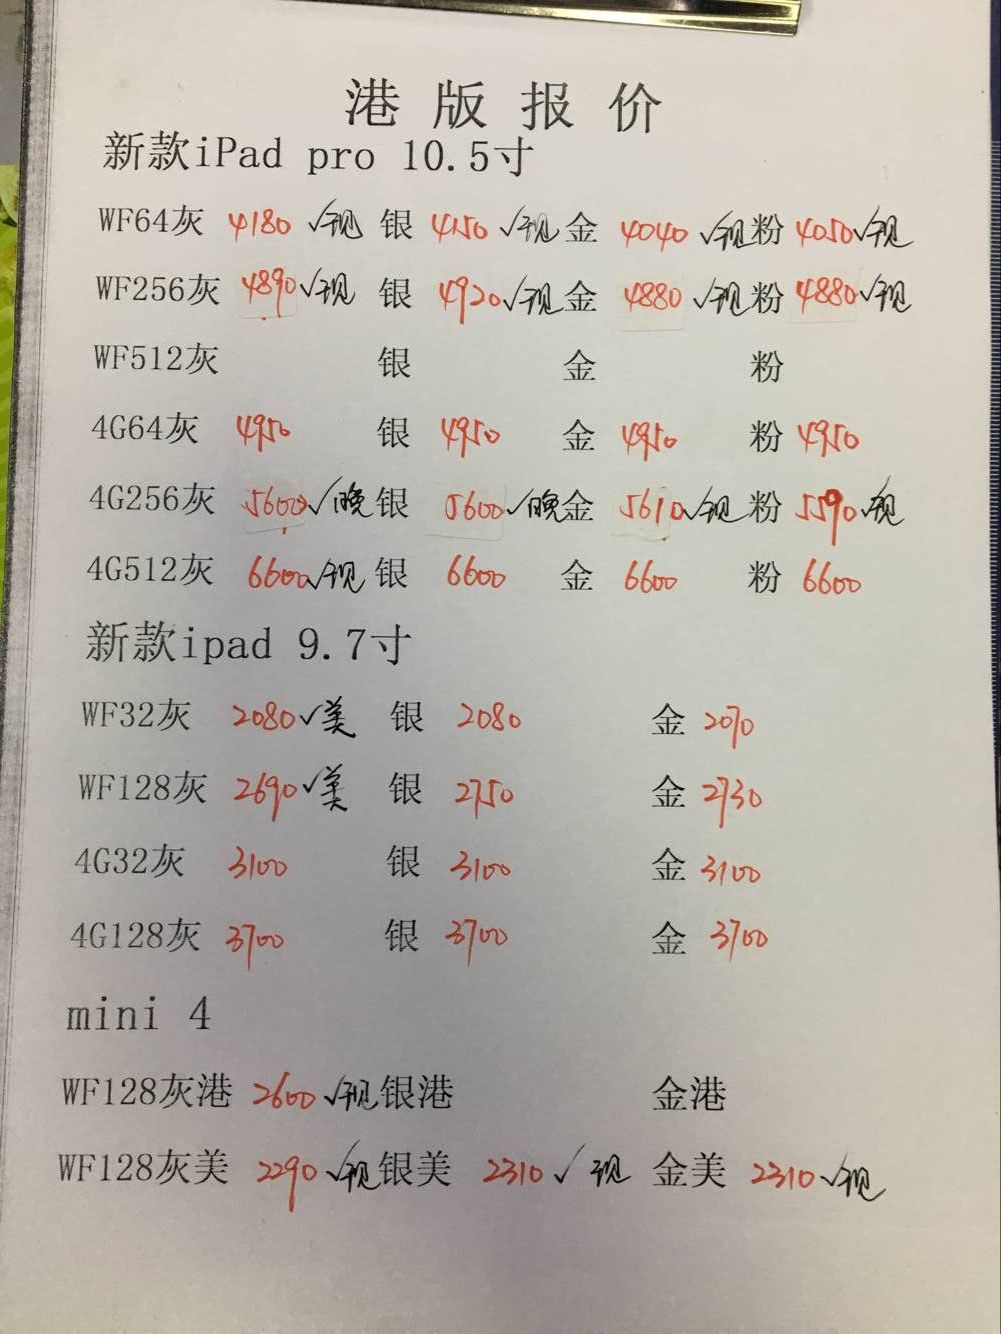 港版报价
新款iPad pro 10.5寸
WF64灰 4180 √现 银 4150 √现 金 4040 √现 粉 4050 √现
WF256灰 4890 √现 银 4920 √现 金 4880 √现 粉 4880 √现
WF512灰 银 金 粉
4G64灰 4950 银 4950 金 4950 粉 4950
4G256灰 5600 √晚 银 5600 √晚 金 5610 √现 粉 5590 √现
4G512灰 6600 √现 银 6600 金 6600 粉 6600
新款ipad 9.7寸
WF32灰 2080 √美 银 2080 金 2070
WF128灰 2690 √美 银 2750 金 2730
4G32灰 3100 银 3100 金 3100
4G128灰 3700 银 3700 金 3700
mini 4
WF128灰港 2600 √现 银港 金港
WF128灰美 2290 √现 银美 2310 √ 现 金美 2310 √现